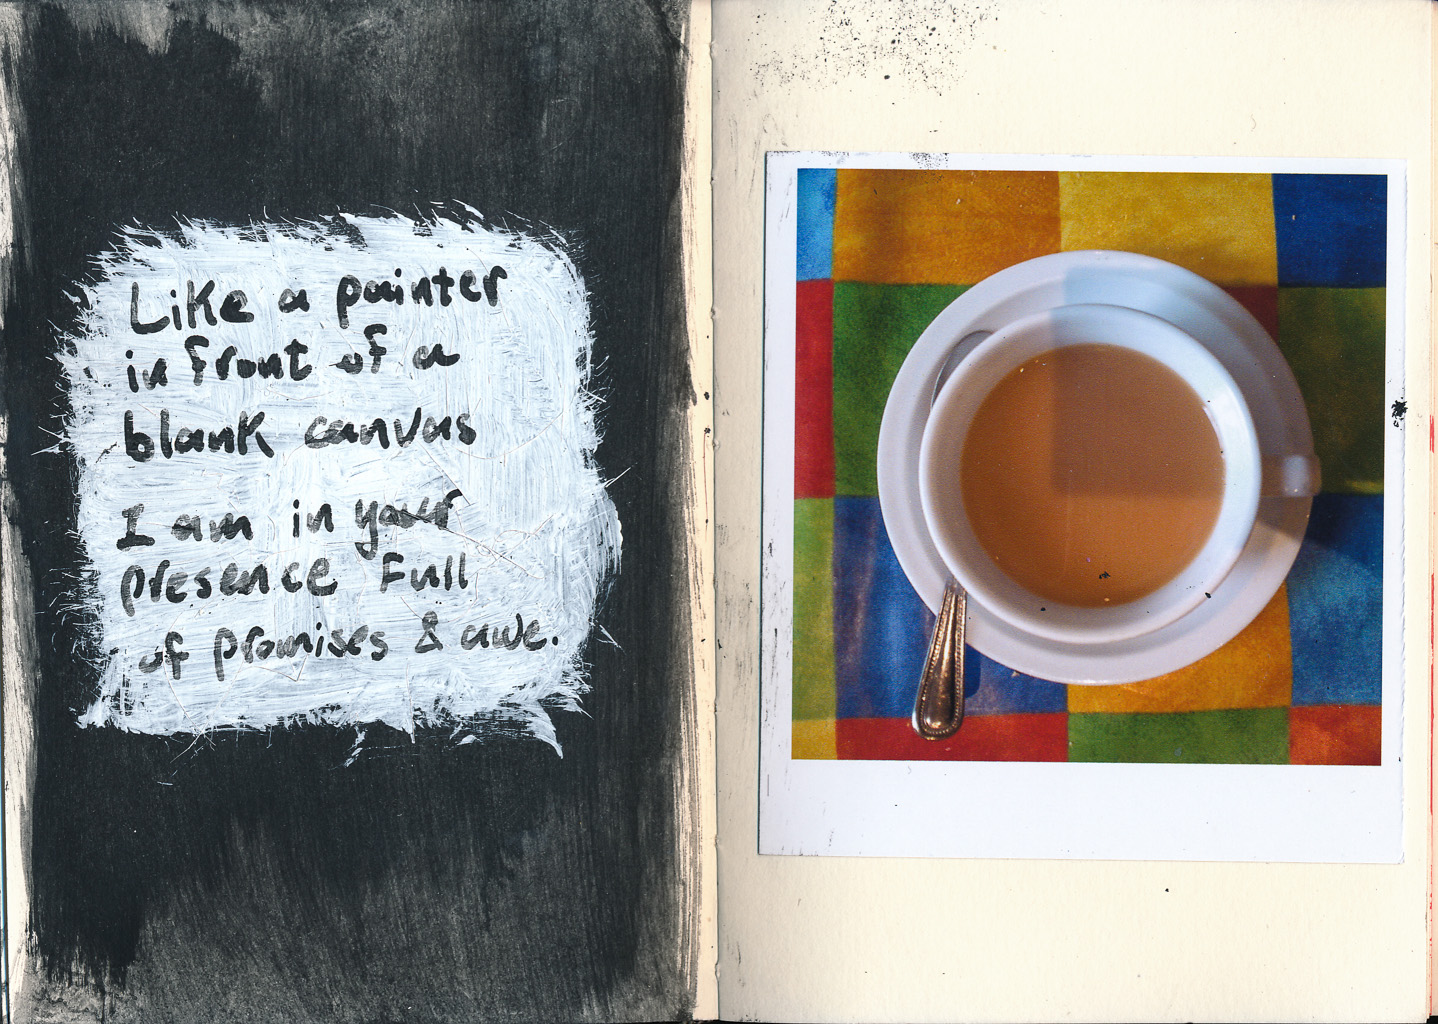 Like a painter
in front of a
blank canvas
I am in your
presence full
of promises & awe.